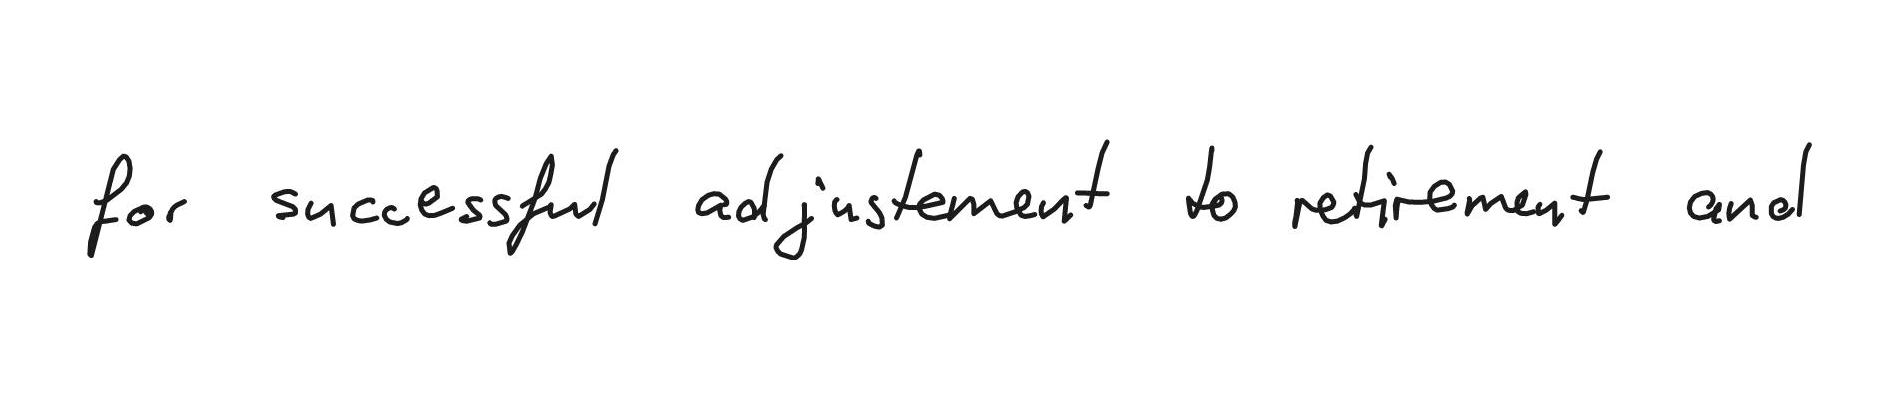 for successful adjustement to retirement and